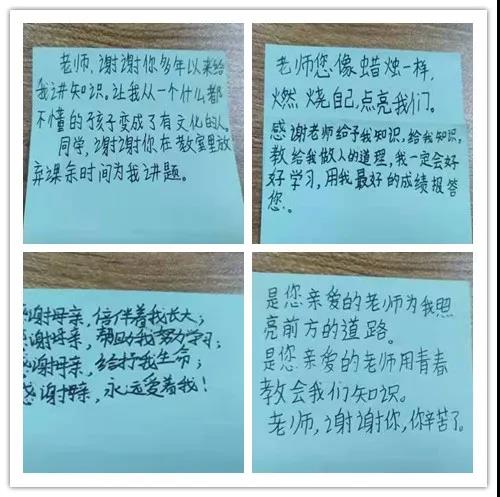 老师，谢谢你多年以来给
我讲知识。让我从一个什么都
不懂的孩子变成了有文化的人。
同学，谢谢你在教室里放
弃课余时间为我讲题。
老师您像蜡烛一样，
燃烧自己，点亮我们。
感谢老师给予我知识，给我知识，
教给我做人的道理，我一定会好
好学习，用我最好的成绩报答
您。
感谢母亲，倍伴着我长大；
感谢母亲，帮助我努力学习；
感谢母亲，给予我生命；
感谢母亲，永远爱着我！
是您亲爱的老师为我照
亮前方的道路。
是您亲爱的老师用青春
教会我们知识。
老师，谢谢你，你辛苦了。